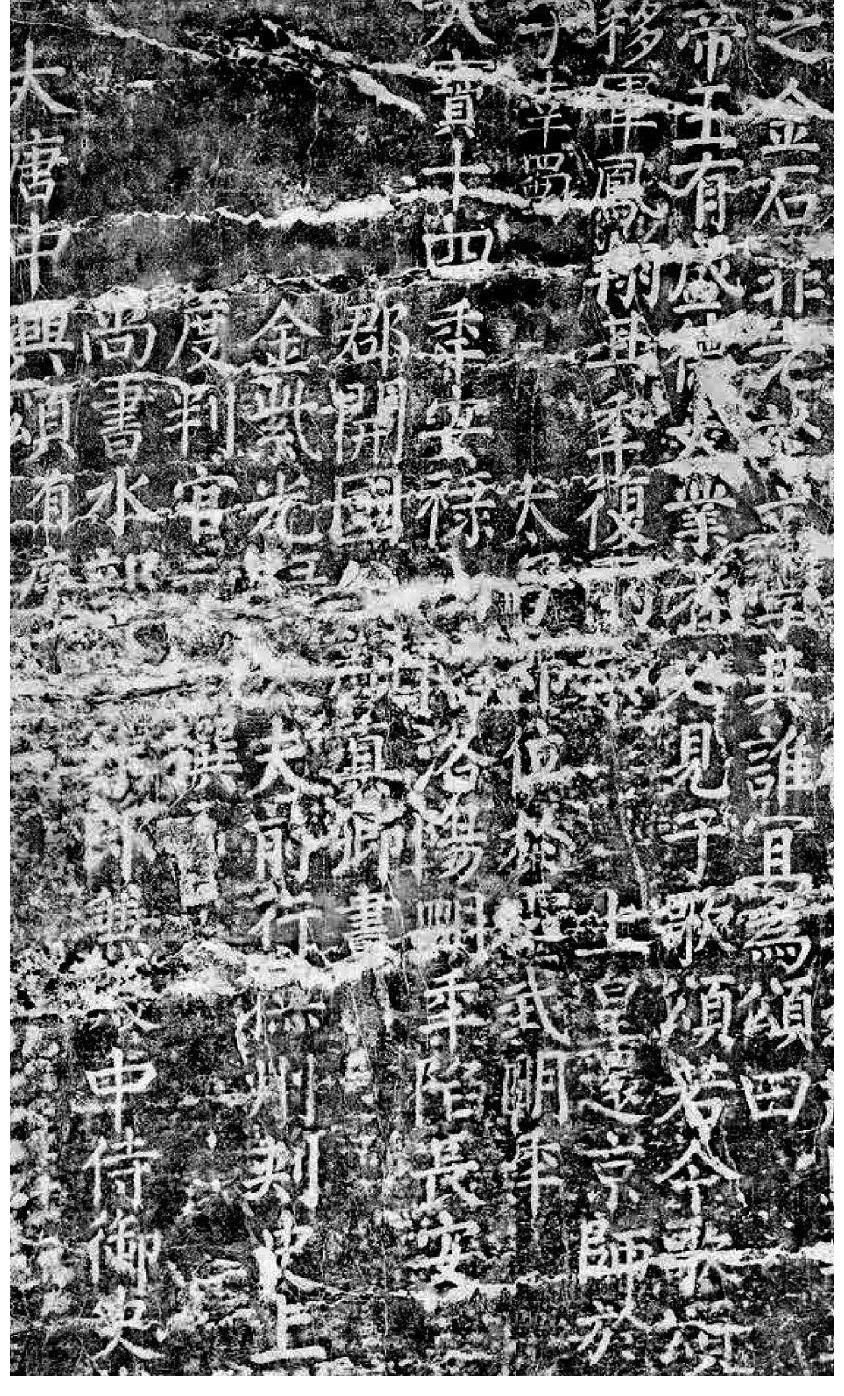 大唐中興頌有序
尚書水部郎兼殿中侍御史
度判官元撰
金紫光祿大夫前行撫州刺史上
郡開國公顏真卿書
天寶十四年安祿山陷洛陽明年陷長安
子幸蜀 太子即位於靈武明年
移軍鳳翔其年復兩京 上皇還京師於
帝王有盛德大業者必見于歌頌若今歌頌
之金石非老於文學其誰宜為頌曰